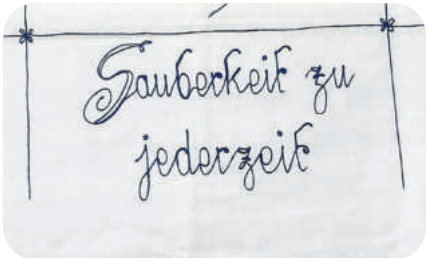 Sauberkeit zu
jederzeit